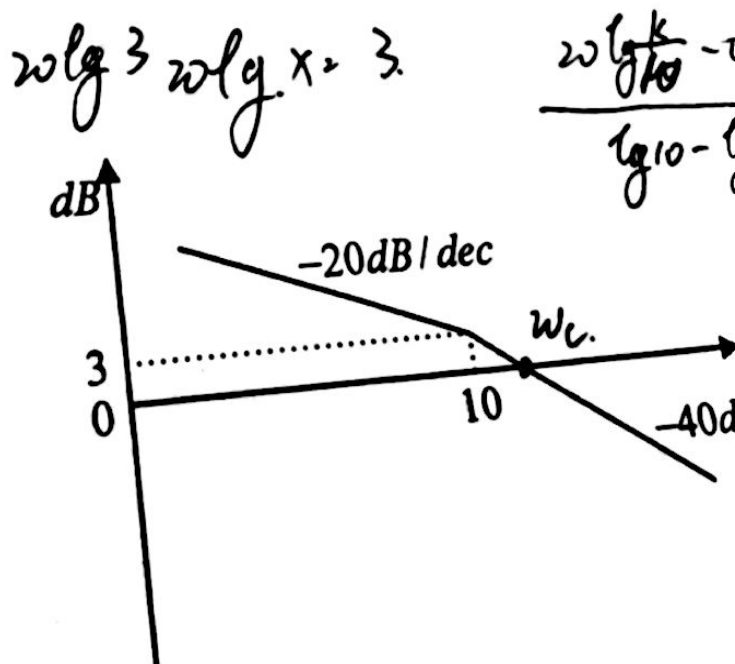 20lg 3 20lg.x= 3.
20lg k/10 -
lg10 - l
dB
-20dB/dec
ωc.
3
0
10
-40d